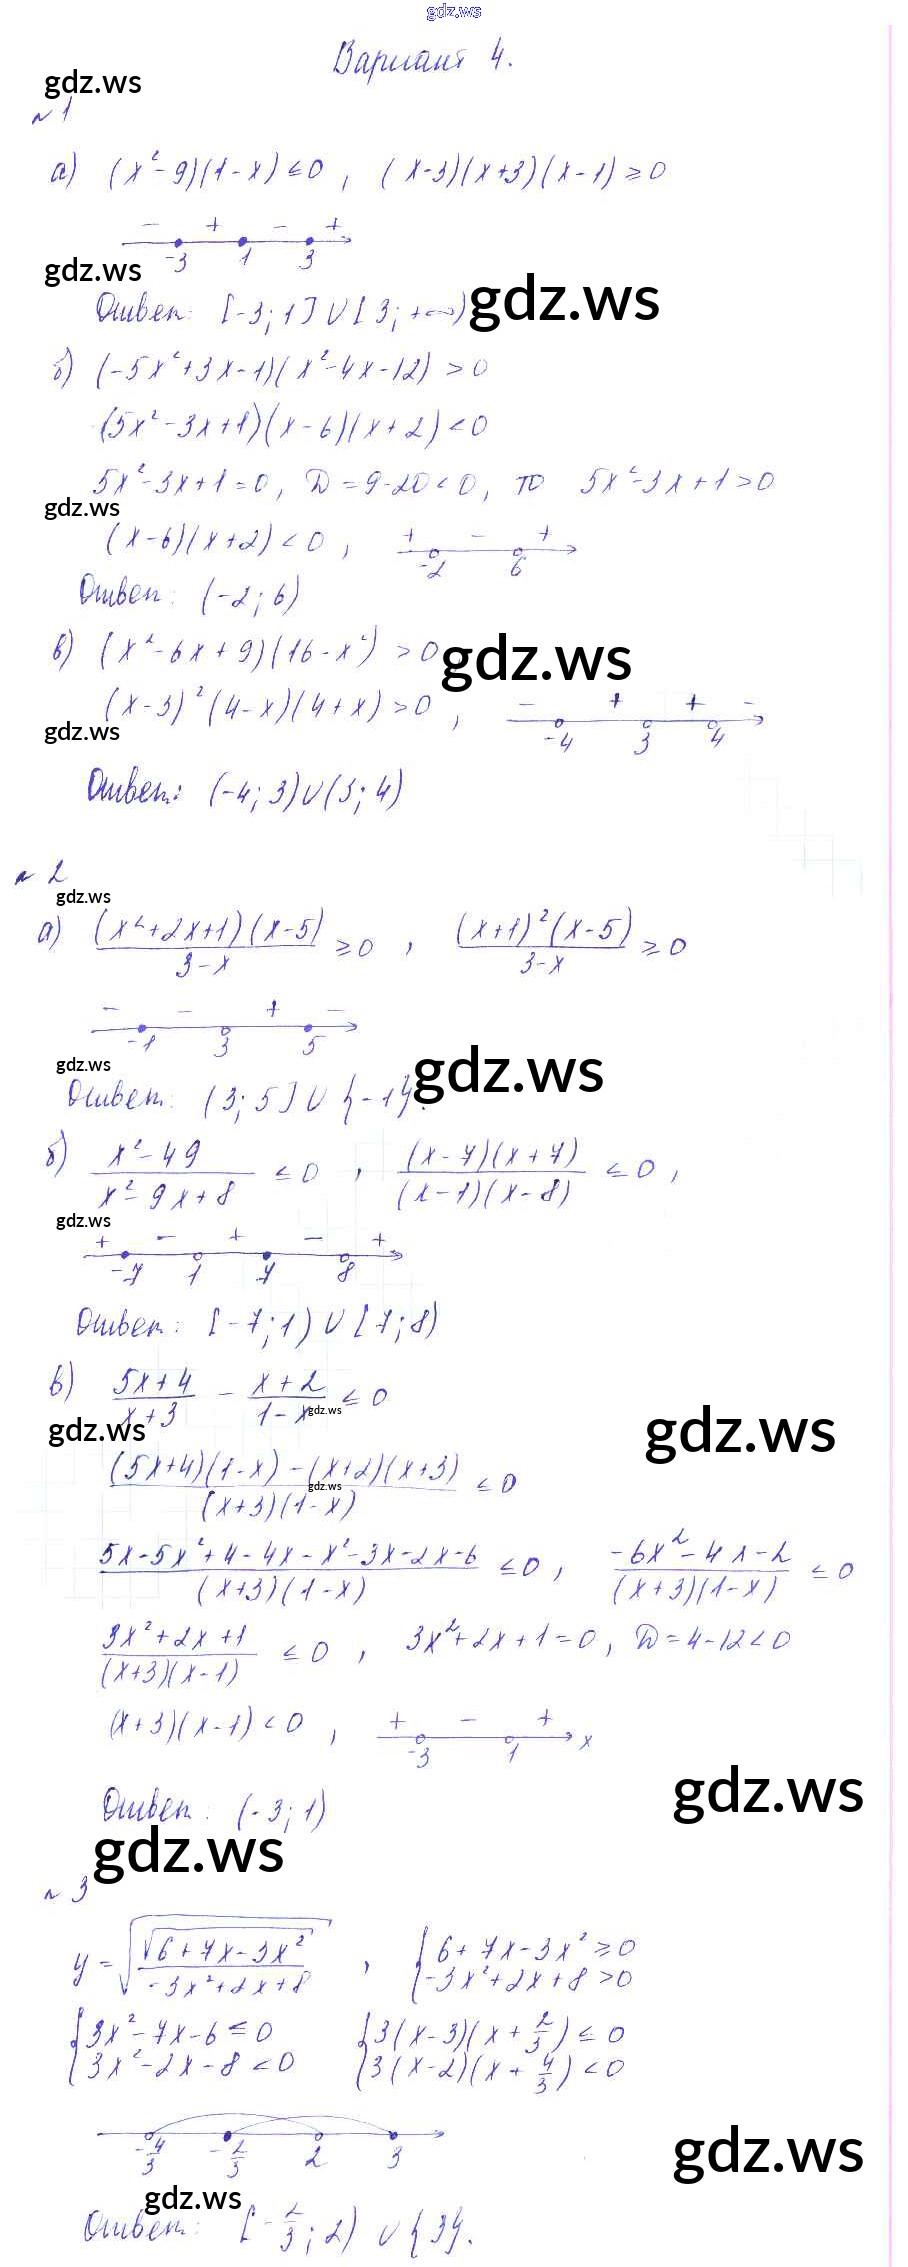 gdz.ws
Вариант 4.
gdz.ws
№ 1
а) (x² - 9)(1 - x) ≤ 0 , (x-3)(x+3)(x-1) ≥ 0
- + - +
-3 1 3
gdz.ws
Ответ: [-3; 1] ∪ [3; +∞) gdz.ws
б) (-5x² + 3x - 1)(x² - 4x - 12) > 0
(5x² - 3x + 1)(x - 6)(x + 2) < 0
5x² - 3x + 1 = 0, D = 9 - 20 < 0, то 5x² - 3x + 1 > 0
gdz.ws
(x - 6)(x + 2) < 0 , + - +
-2 6
Ответ: (-2; 6)
в) (x² - 6x + 9)(16 - x²) > 0 gdz.ws
(x - 3)² (4 - x)(4 + x) > 0 , - + + -
gdz.ws -4 3 4
Ответ: (-4; 3) ∪ (3; 4)
№ 2
gdz.ws
а) (x² + 2x + 1)(x - 5) / 3 - x ≥ 0 , (x + 1)² (x - 5) / 3 - x ≥ 0
- - + -
-1 3 5
gdz.ws gdz.ws
Ответ: (3; 5] ∪ {-1}.
б) x² - 49 / x² - 9x + 8 ≤ 0 , (x - 7)(x + 7) / (x - 1)(x - 8) ≤ 0 ,
gdz.ws
+ - + - +
-7 1 7 8
Ответ: [-7; 1) ∪ [7; 8)
в) 5x + 4 / x + 3 - x + 2 / 1 - x ≤ 0
gdz.ws gdz.ws gdz.ws
(5x+4)(1-x) - (x+2)(x+3) / (x+3)(1-x) ≤ 0
gdz.ws
5x - 5x² + 4 - 4x - x² - 3x - 2x - 6 / (x+3)(1-x) ≤ 0 , -6x² - 4x - 2 / (x+3)(1-x) ≤ 0
3x² + 2x + 1 / (x+3)(x-1) ≤ 0 , 3x² + 2x + 1 = 0, D = 4 - 12 < 0
(x+3)(x-1) < 0 , + - +
-3 1 x
gdz.ws
Ответ: (-3; 1)
gdz.ws
№ 3
y = √(√(6 + 7x - 3x²) / -3x² + 2x + 8) , { 6 + 7x - 3x² ≥ 0
-3x² + 2x + 8 > 0
{ 3x² - 7x - 6 ≤ 0 { 3(x - 3)(x + 2/3) ≤ 0
3x² - 2x - 8 < 0 3(x - 2)(x + 4/3) < 0
-4/3 -2/3 2 3
gdz.ws
gdz.ws
Ответ: [-2/3; 2) ∪ {3}.